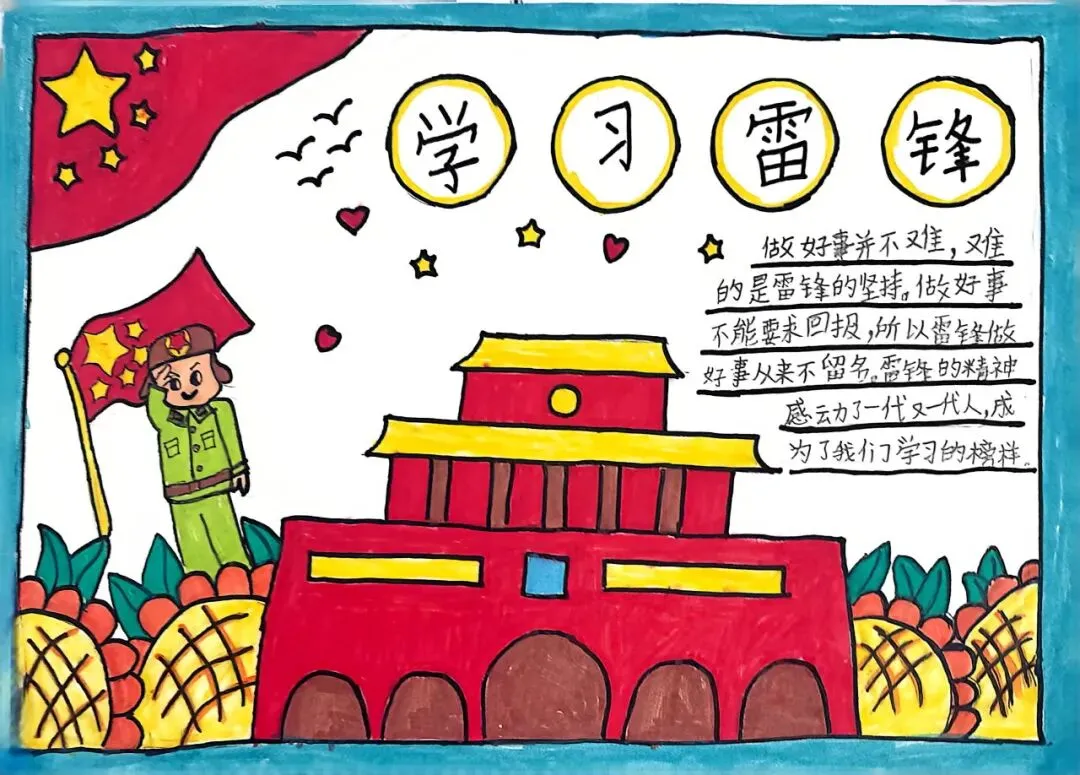 学习雷锋
做好事并不难,难
的是雷锋的坚持。做好事
不能要求回报,所以雷锋做
好事从来不留名。雷锋的精神
感动了一代又一代人,成
为了我们学习的榜样。